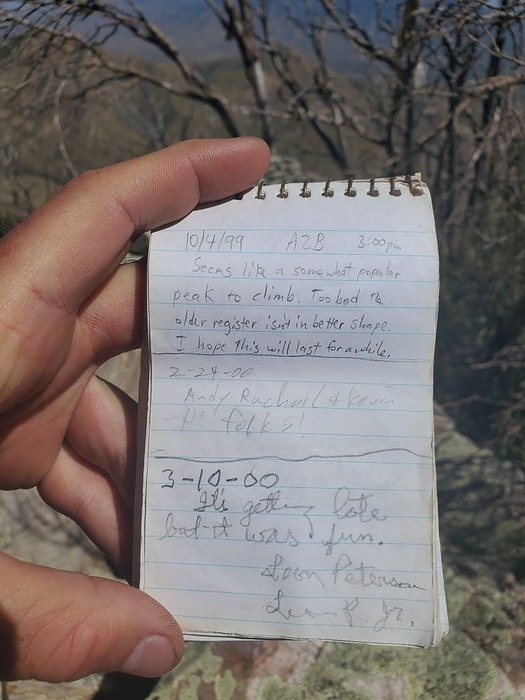 10/4/99 AZB 3:00pm
Seems like a somewhat popular
peak to climb. Too bad the
older register isn't in better shape.
I hope This will last for awhile.
2-24-00
Andy Rachael & Kevin
-Hi folks!
3-10-00
It's getting late
but it was fun.
Leon Peterson
Leon P. Jr.